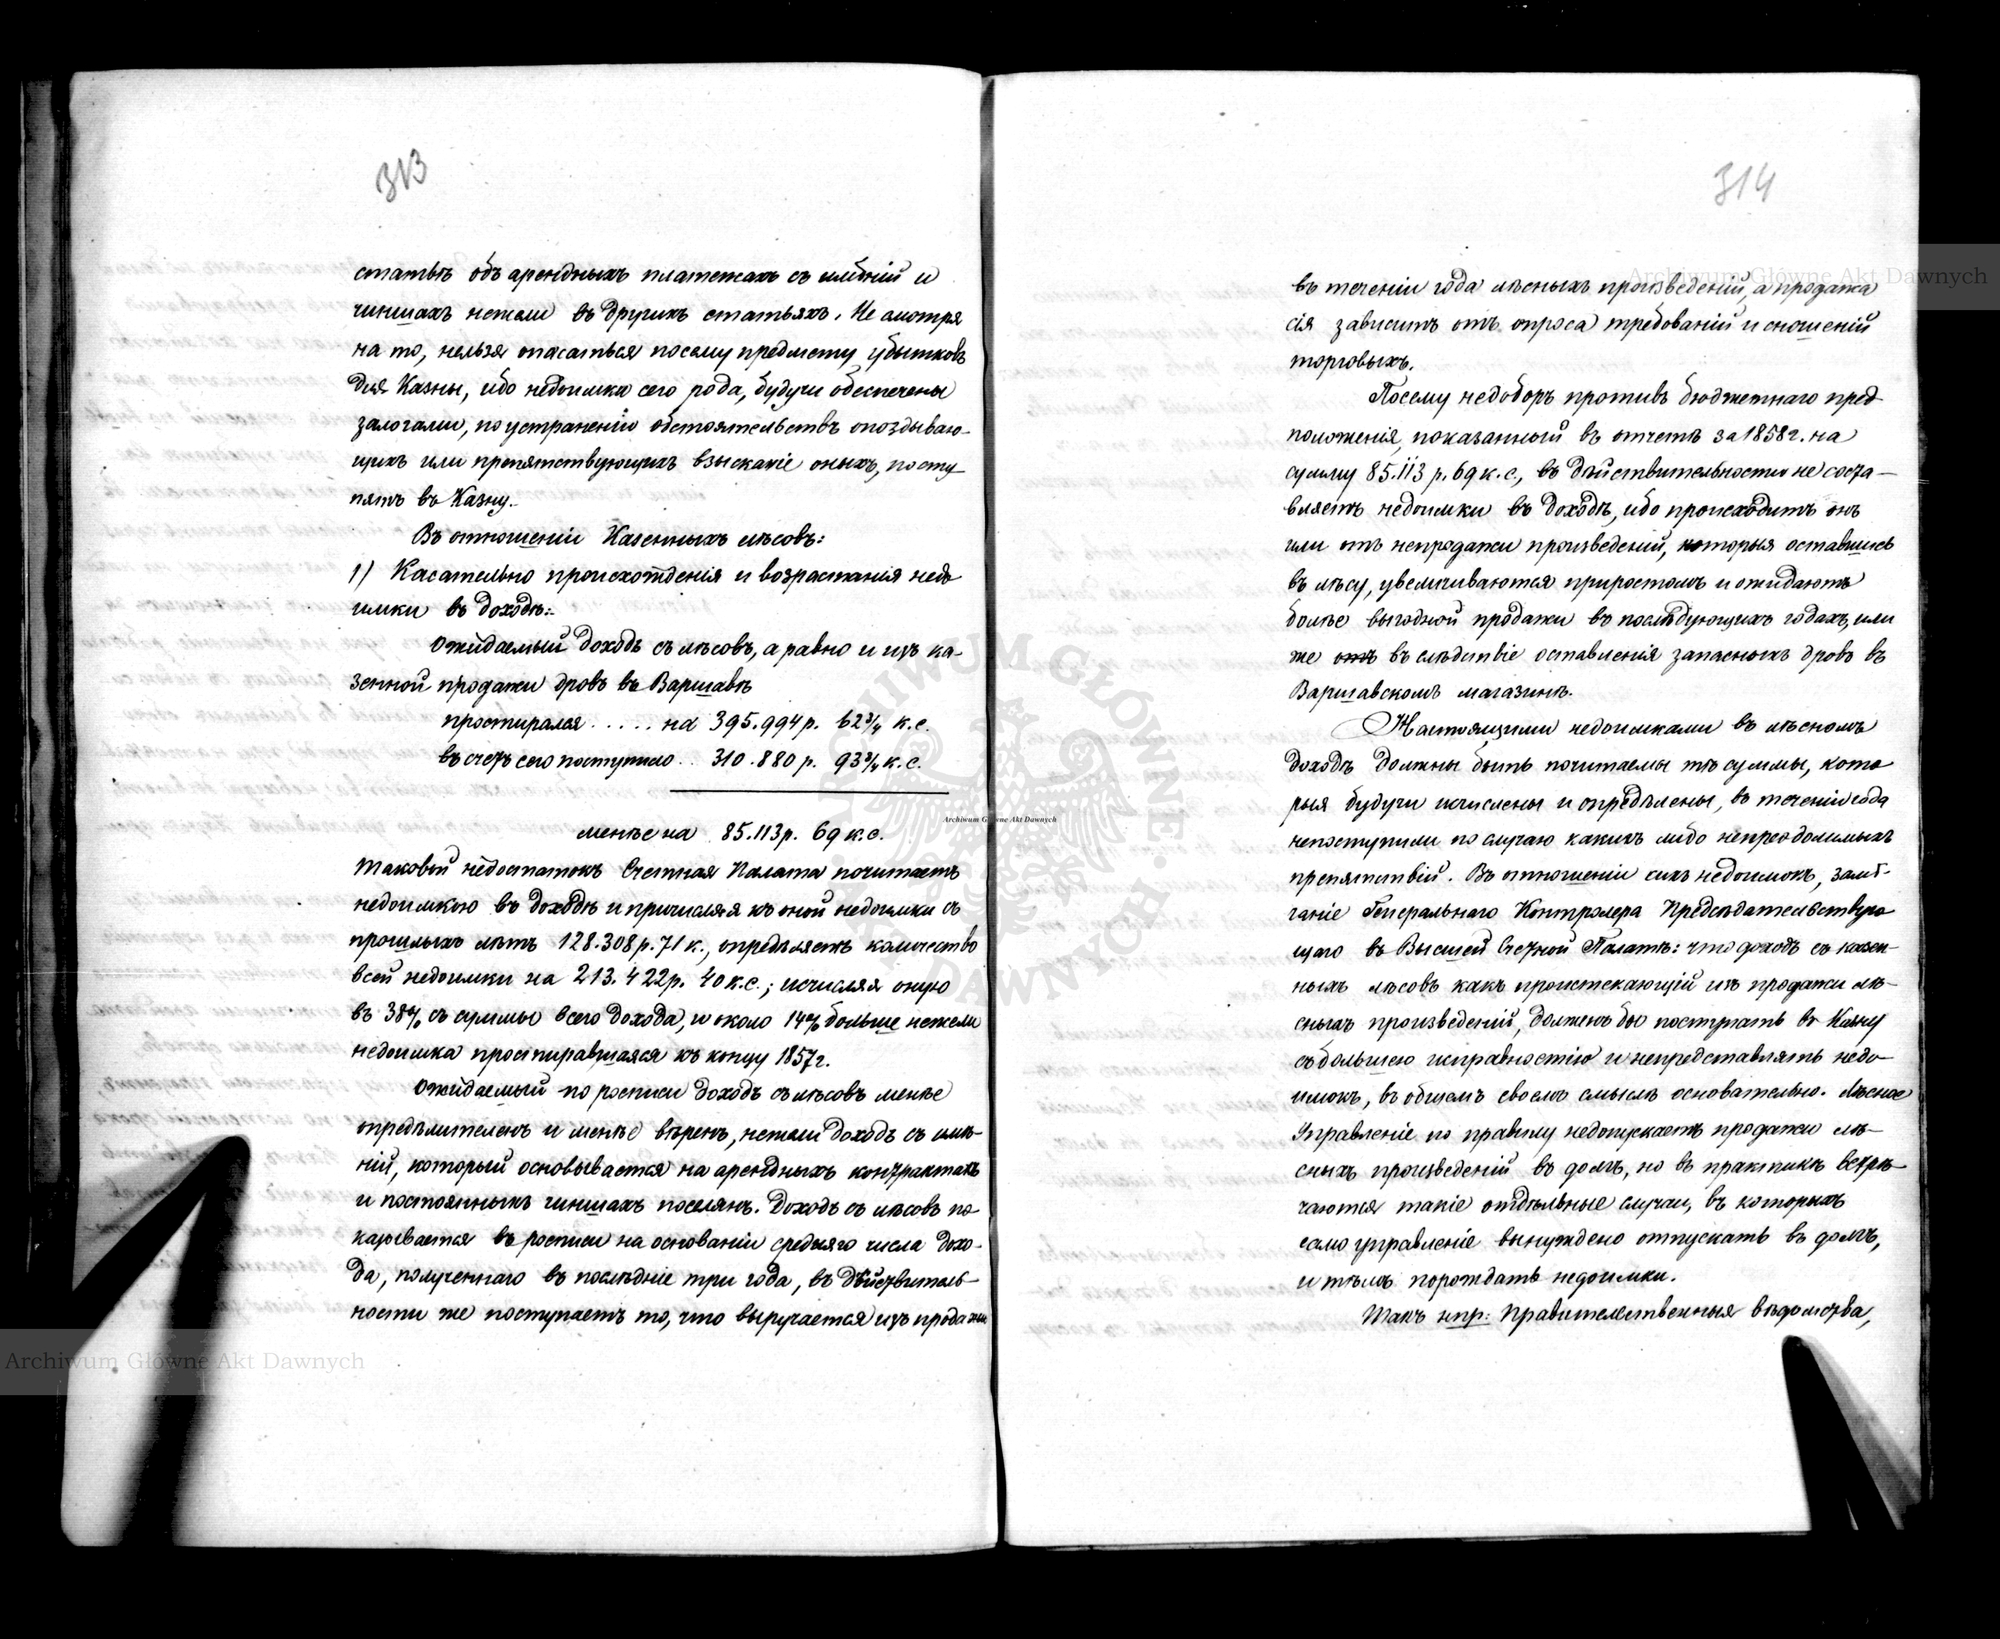 313
статьѣ объ арендныхъ платежахъ съ имѣній и
чиншахъ нежели въ другихъ статьяхъ. Не смотря
на то, нельзя опасаться посему предмету убытковъ
для Казны, ибо недоимки сего рода, будучи обеспечены
залогами, по устраненію обстоятельствъ опоздываю-
щихъ или препятствующихъ взысканіе оныхъ, посту-
пятъ въ Казну.
Въ отношеніи Казенныхъ лѣсовъ:
1) Касательно происхожденія и возрастанія недо
имки въ доходѣ:
Ожидаемый доходъ съ лѣсовъ, а равно и изъ ка-
зенной продажи дровъ въ Варшавѣ
простирался ..... на 395.994 р. 62¾ к.с.
въ счетъ сего поступило .. 310.880 р. 93¾ к.с.
менѣе на 85.113 р. 69 к.с.
Таковой недостатокъ Счетная Палата почитаетъ
недоимкою въ доходѣ и причисляя къ оной недоимки съ
прошлыхъ лѣтъ 128.308 р. 71 к., опредѣляетъ количество
всей недоимки на 213.422 р. 40 к.с.; исчисляя оную
въ 38% съ суммы всего дохода, и около 14% больше нежели
недоимка простиравшаяся къ концу 1857 г.
Ожидаемый по росписи доходъ съ лѣсовъ менѣе
опредѣлителенъ и менѣе вѣренъ, нежели доходъ съ имѣ-
ній, который основывается на арендныхъ контрактахъ
и постоянныхъ чиншахъ поселянъ. Доходъ съ лѣсовъ по-
казывается въ росписи на основаніи средняго числа дохо-
да, полученнаго въ послѣдніе три года, въ дѣйствитель-
ности же поступаетъ то, что выручается изъ продажи
314
въ теченіи года лѣсныхъ произведеній, а продажа
сія зависитъ отъ опроса требованій и сношеній
торговыхъ.
Посему недоборъ противъ бюджетнаго пред
положенія, показанный въ отчетѣ за 1858 г. на
сумму 85.113 р. 69 к.с., въ дѣйствительности не соста-
вляетъ недоимки въ доходѣ, ибо происходитъ онъ
или отъ непродажи произведеній, которыя оставшись
въ лѣсу, увеличиваются приростомъ и ожидаютъ
болѣе выгодной продажи въ послѣдующихъ годахъ, или
же отъ въ слѣдствіе оставленія запасныхъ дровъ въ
Варшавскомъ магазинѣ.
Настоящими недоимками въ лѣсномъ
доходѣ должны быть почитаемы тѣ суммы, кото
рыя будучи исчислены и опредѣлены, въ теченіи года
непоступили по случаю какихъ либо непреодолимыхъ
препятствій. Въ отношеніи сихъ недоимокъ, замѣ-
чаніе Генеральнаго Контролера Предсѣдательствую
щаго въ Высшей Счетной Палатѣ: что доходъ съ казен-
ныхъ лѣсовъ какъ проистекающій изъ продажи лѣ-
сныхъ произведеній, долженъ бы поступать въ Казну
съ большею исправностію и непредставлять недо-
имокъ, въ общемъ своемъ смыслѣ основательно. Лѣсное
Управленіе по правилу недопускаетъ продажи лѣ-
сныхъ произведеній въ долгъ, но въ практикѣ встрѣ-
чаются такіе отдѣльные случаи, въ которыхъ
само управленіе вынуждено отпускать въ долгъ,
и тѣмъ порождать недоимки.
Такъ нпр: Правительственныя вѣдомства,
Archiwum Główne Akt Dawnych
Archiwum Główne Akt Dawnych
Archiwum Główne Akt Dawnych
ARCHIWUM GŁÓWNE AKT DAWNYCH